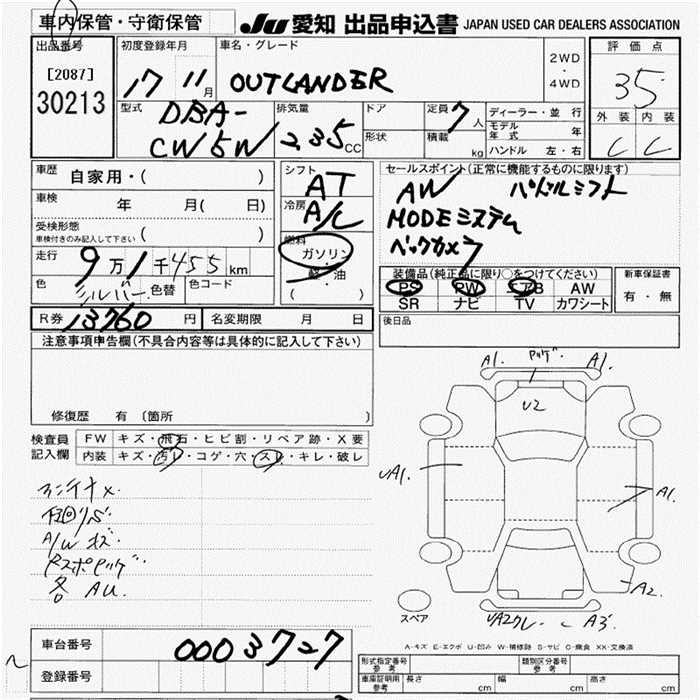 車内保管・守衛保管
JU 愛知 出品申込書 JAPAN USED CAR DEALERS ASSOCIATION
出品番号
[2087]
30213
初度登録年月
17 11月
車名・グレード
OUTLANDER
2WD
・
4WD
評価点
3.5
外装 内装
C C
型式
DBA-
CW5W
排気量
2,35 CC
ドア
形状
定員 7人
積載 kg
ディーラー・並行
モデル年式 年
ハンドル 左・右
車歴 自家用・( )
車検 年 月( 日)
受検形態
車検付きのみ記入して下さい ( )
走行 9万1千455km
色 シルバー 色替 色コード
シフト AT
冷房 A/C
燃料
ガソリン
軽・油
( )
セールスポイント(正常に機能するものに限ります)
AW パドルシフト
MODEシステム
バックカメラ
装備品(純正品に限り○をつけてください)
PS PW エアB AW
SR ナビ TV カワシート
新車保証書
有・無
R券 13760円 名変期限 月 日
後日品
注意事項申告欄(不具合内容等は具体的に記入して下さい)
修復歴 有(箇所 )
検査員記入欄
FW キズ・飛石・ヒビ割・リペア跡・X要
内装 キズ・汚れ・コゲ・穴・スレ・キレ・破レ
下廻りサビ
A/W キズ
各 AU.
A1. A1.
U2
UA1.
A1.
A2
A3
スペア
A-キズ E-エクボ U-凹み W-補修跡 S-サビ C-腐食 XX-交換済
車台番号 0003727
登録番号
型式指定番号 参考
類別区分番号 参考
車庫証明用 参考 長さ cm 幅 cm 高さ cm